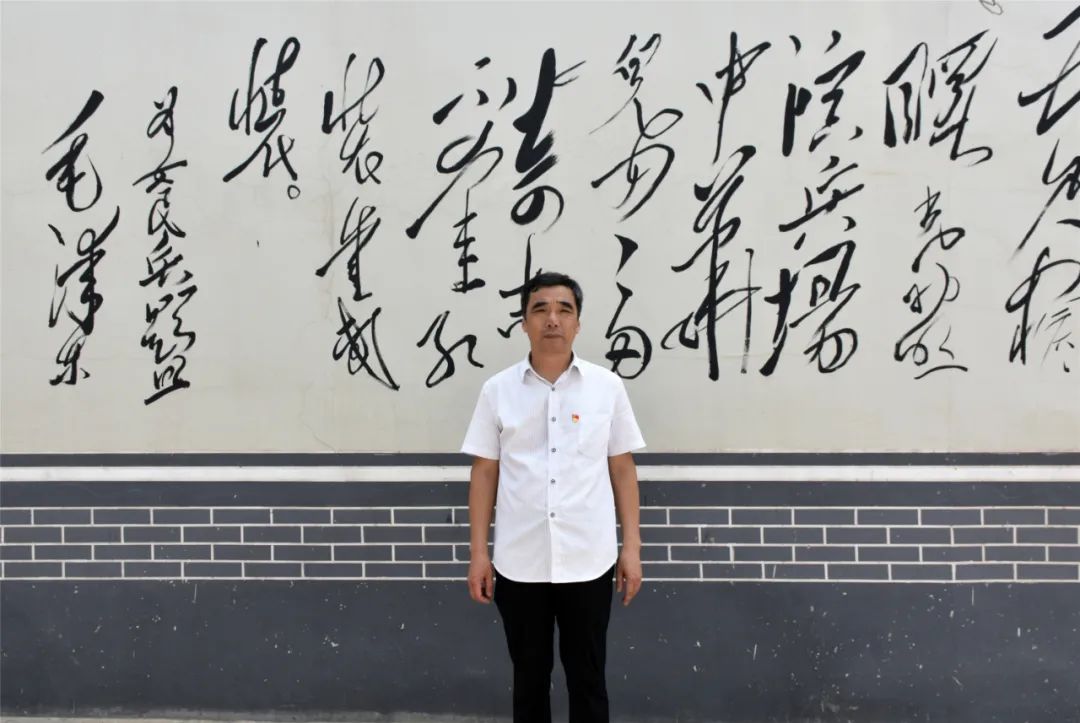 五尺枪
曙光初照
演兵场
中华
儿女多
奇志
不爱红
装爱武
装。
为女民兵题照
毛泽东